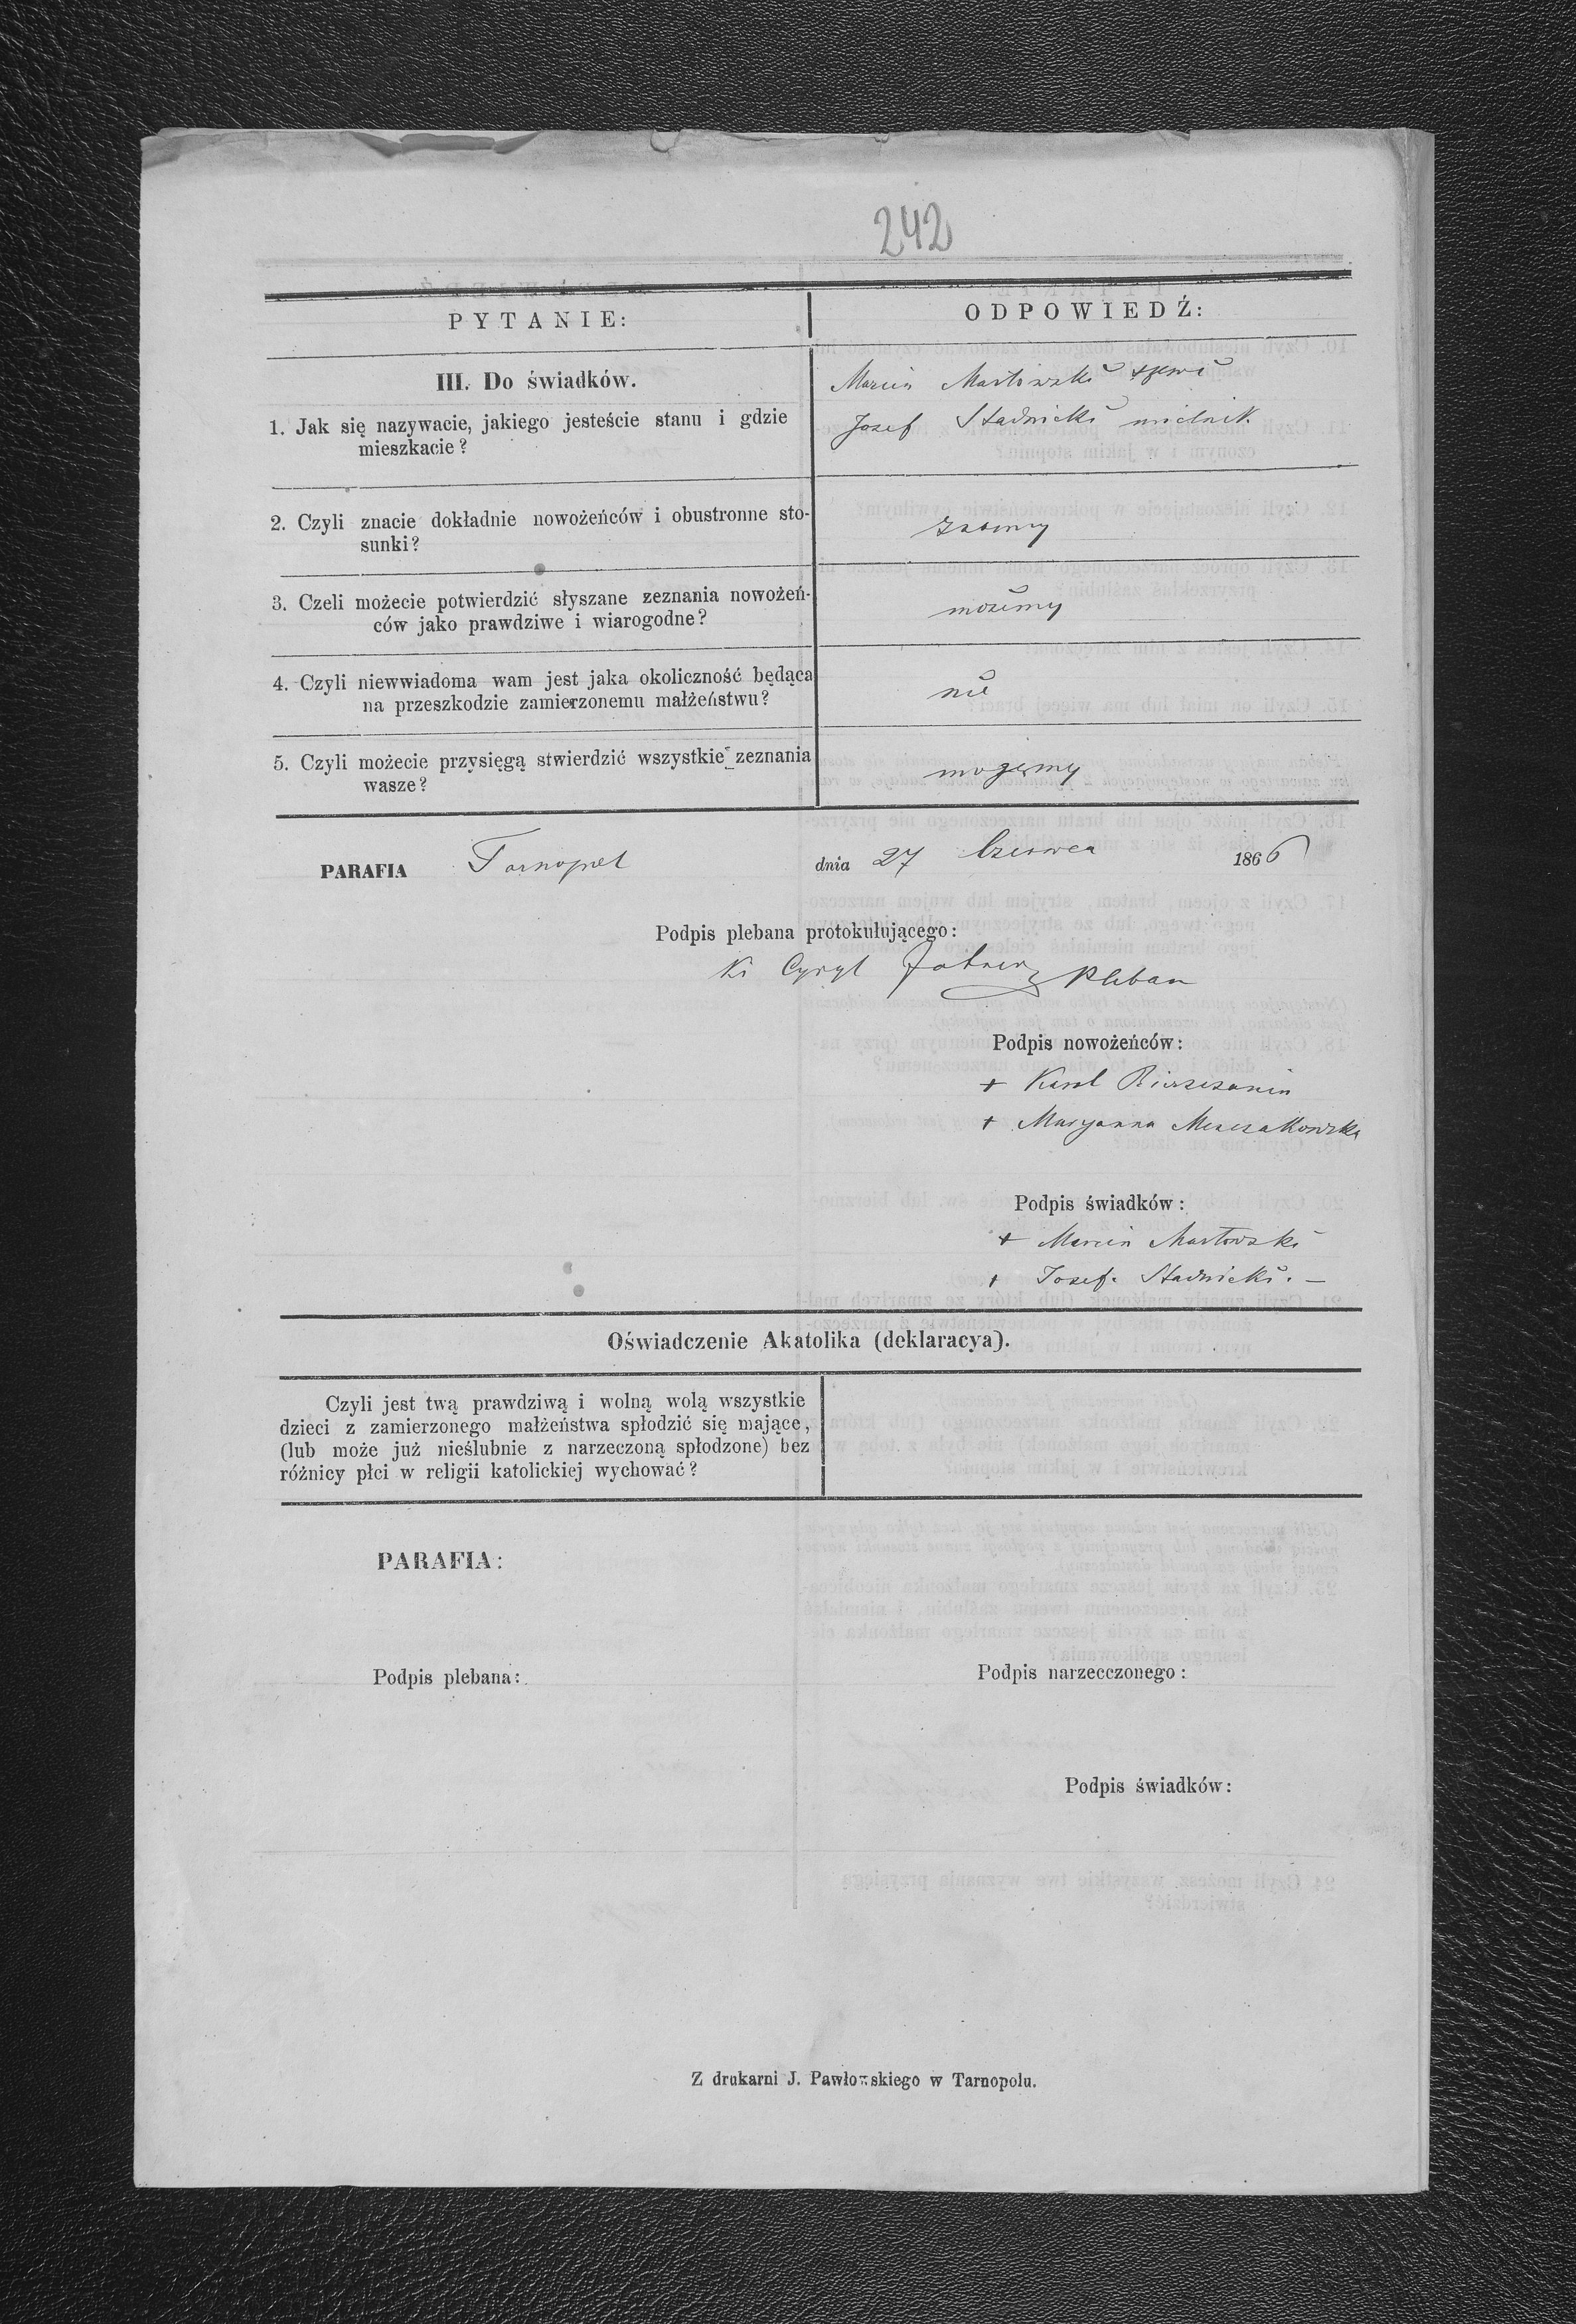 242
PYTANIE:
ODPOWIEDŹ:
III. Do świadków.
1. Jak się nazywacie, jakiego jesteście stanu i gdzie
mieszkacie?
Marcin Martowski szewc
Josef Stadnicki mielnik
2. Czyli znacie dokładnie nowożeńców i obustronne sto-
sunki?
znamy
3. Czeli możecie potwierdzić słyszane zeznania nowożeń-
ców jako prawdziwe i wiarogodne?
możemy
4. Czyli niewwiadoma wam jest jaka okoliczność będąca
na przeszkodzie zamierzonemu małżeństwu?
nie
5. Czyli możecie przysięgą stwierdzić wszystkie zeznania
wasze?
mogemy
PARAFIA Tarnopol dnia 27 Czerwca 1866
Podpis plebana protokułującego:
Cyryl Pleban
Podpis nowożeńców:
+ Karol
+ Maryanna
Podpis świadków:
+ Marcin Martowski
+ Josef. Stadnicki. —
Oświadczenie Akatolika (deklaracya).
Czyli jest twą prawdziwą i wolną wolą wszystkie
dzieci z zamierzonego małżeństwa spłodzić się mające,
(lub może już nieślubnie z narzeczoną spłodzone) bez
różnicy płci w religii katolickiej wychować?
PARAFIA:
Podpis plebana:
Podpis narzecczonego:
Podpis świadków:
Z drukarni J. Pawłowskiego w Tarnopolu.